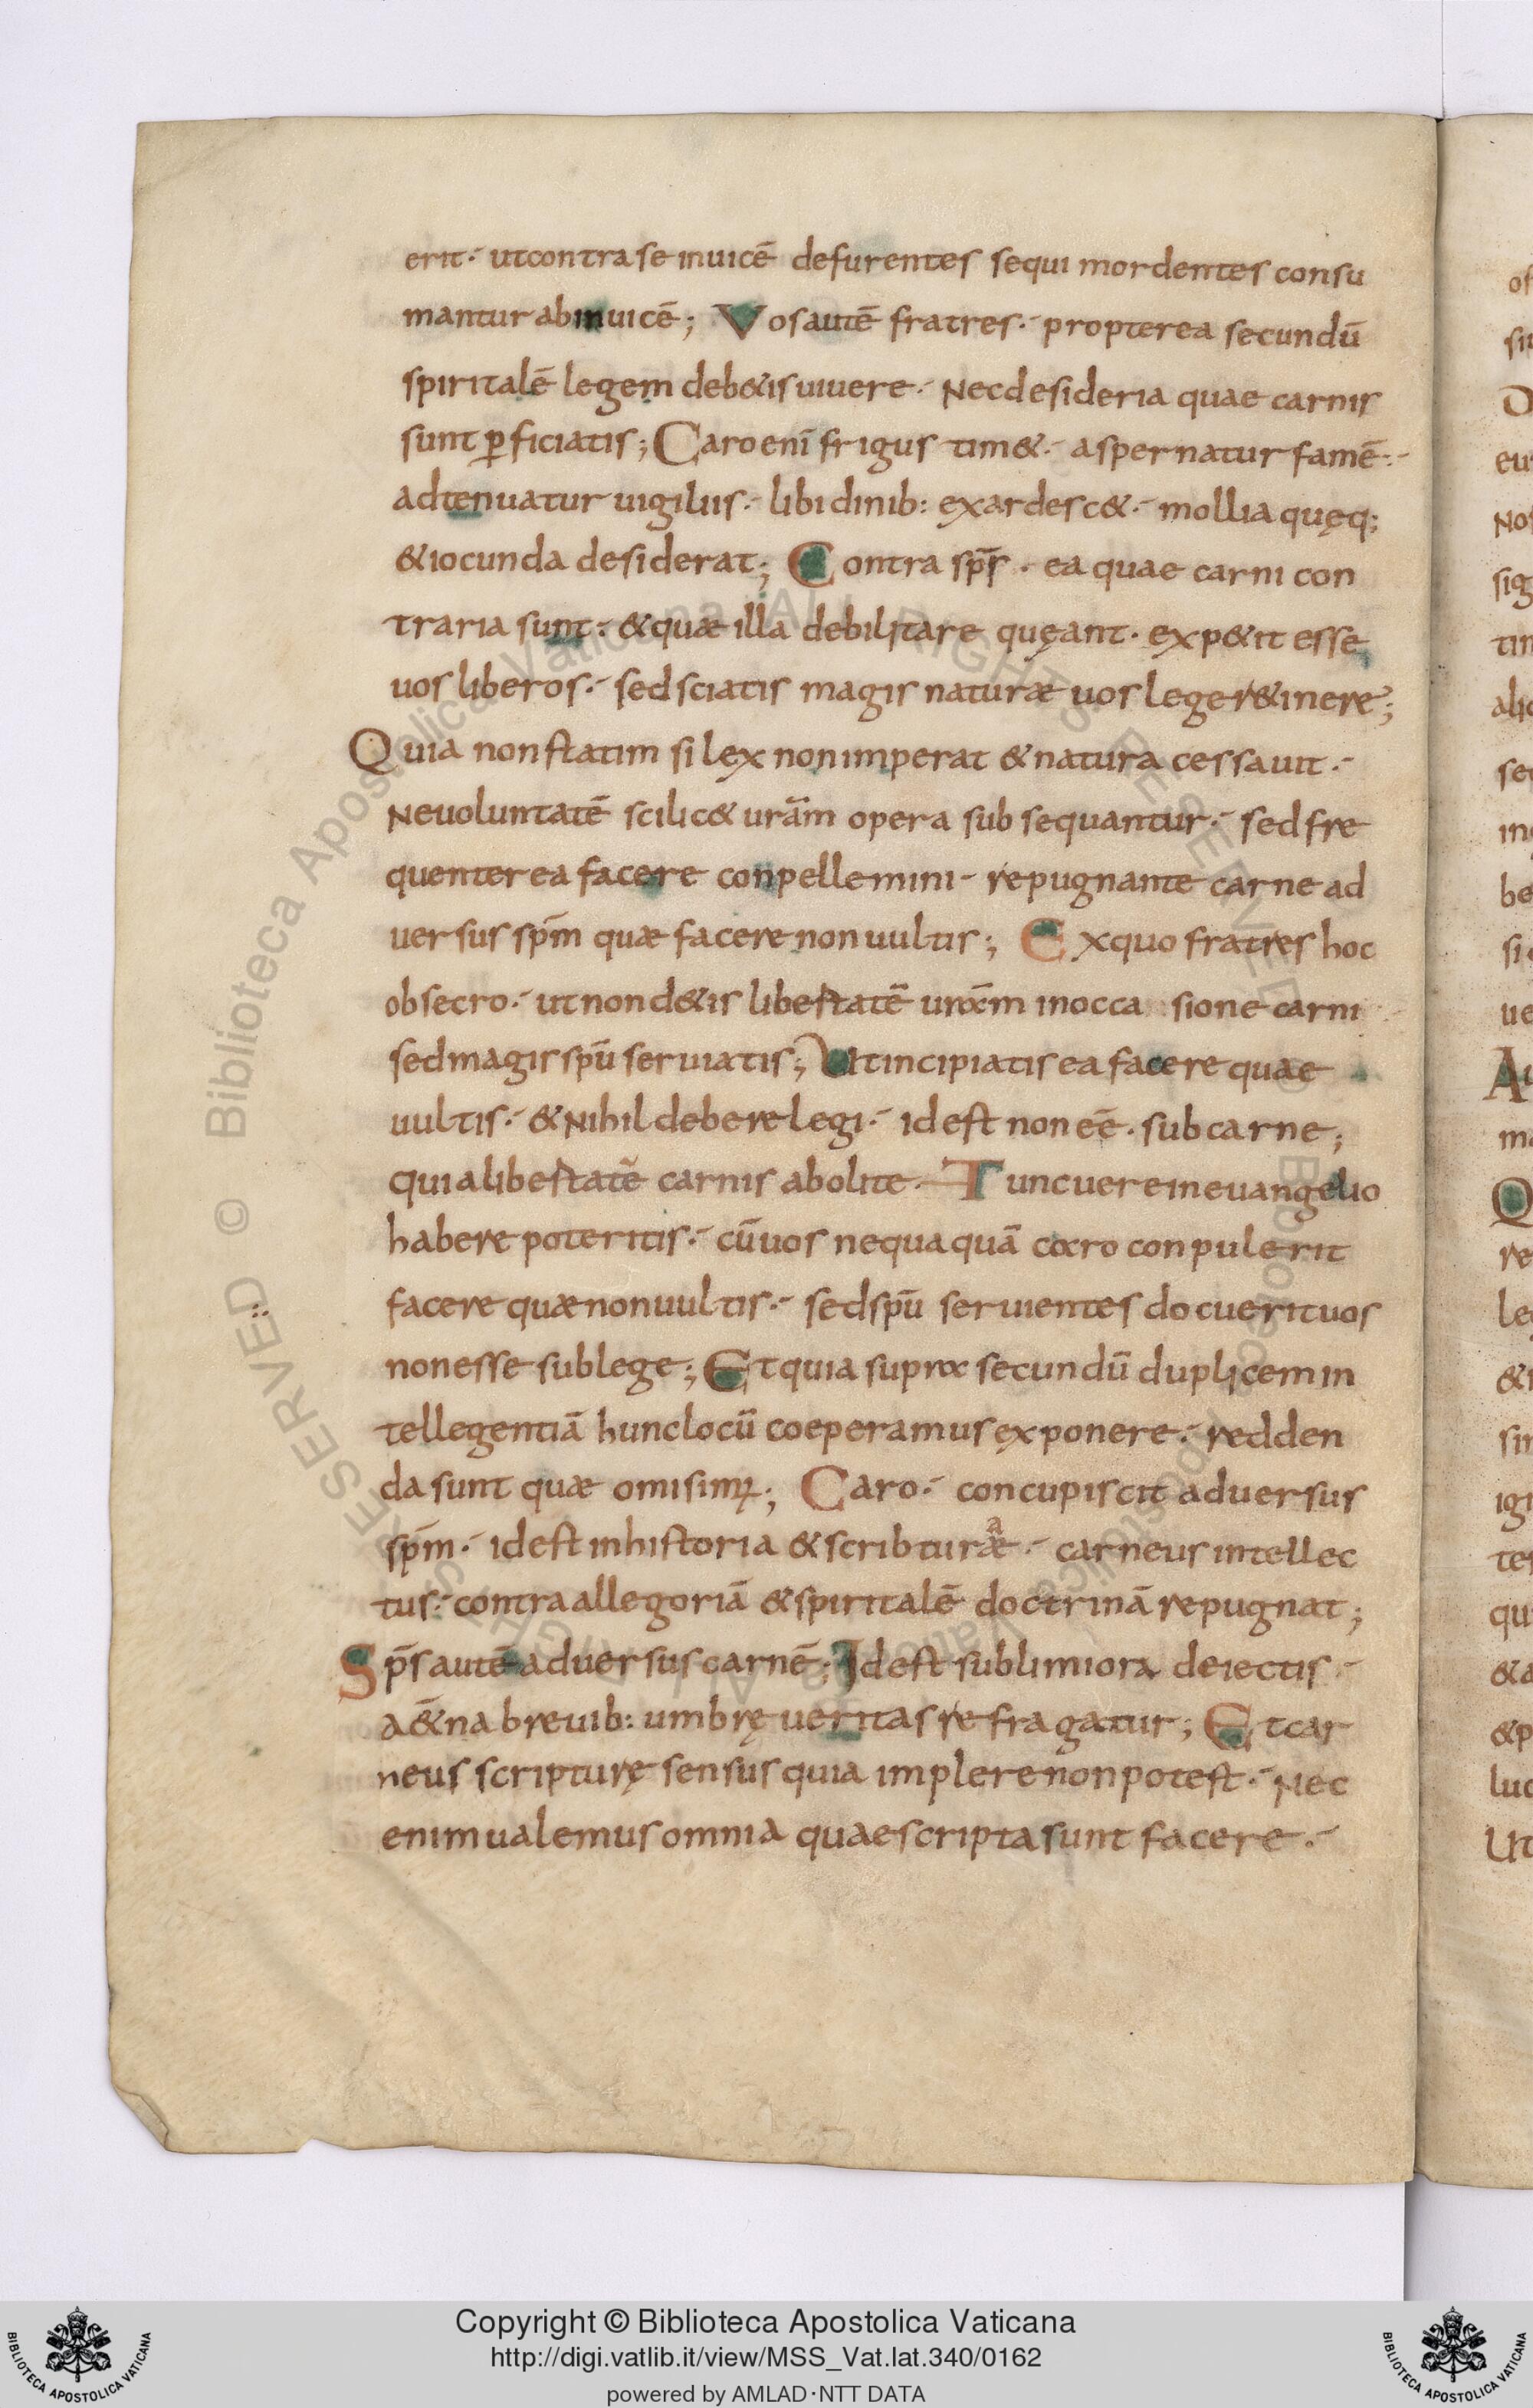 erit·- ut contra se inuicē defurentes sequi mordentes consu
mantur ab inuicē; Vos autē fratres·- propterea secundū
spiritalē legem deb&is uiuere·- Nec desideria quae carnis
sunt ꝑficiatis; Caro enī frigus tim&·- aspernatur famē·-
adtenuatur uigiliis·- libidinib: exardesc&·- mollia quęq;
& iocunda desiderat; Contra sp̄s · ea quae carni con
traria sunt: & quæ illa debilitare quęant · exp&it esse
uos liberos·- sed sciatis magis naturæ uos lege r&inere;
Quia non statim si lex non imperat & natura cessauit·-
Ne uoluntatē scilic& urām opera subsequantur·- sed fre
quenter ea facere conpellemini- repugnante carne ad
uersus sp̄m quæ facere non uultis; Ex quo fratres hoc
obsecro·- ut non d&is libertatē urām in occa sione carni
sed magis spū seruiatis; Ut incipiatis ea facere quae
uultis·- & Nihil debere legi·- id est non eē · sub carne;
quia libertatē carnis abolite·- Tunc uere in euangelio
habere poteritis·- cū uos nequaquā caro conpulerit
facere quæ non uultis·- sed spū seruientes docuerit uos
non esse sub lege; Et quia supra secundū duplicem in
tellegentiā hunc locū coeperamus exponere·- redden
da sunt quæ omisimꝰ; Caro·- concupiscit aduersus
sp̄m·- id est in historia & scribturæ a·- carneus intellec
tus·- contra allegoriā & spiritalē doctrinā repugnat;
Sp̄s autē aduersus carnē; Id est sublimiora deiectis·-
a&̄na breuib: umbrę ueritas refragatur; Et car
neus scripturę sensus quia implere non potest·- Nec
enim ualemus omnia quae scripta sunt facere·-
Copyright © Biblioteca Apostolica Vaticana
http://digi.vatlib.it/view/MSS_Vat.lat.340/0162
powered by AMLAD·NTT DATA